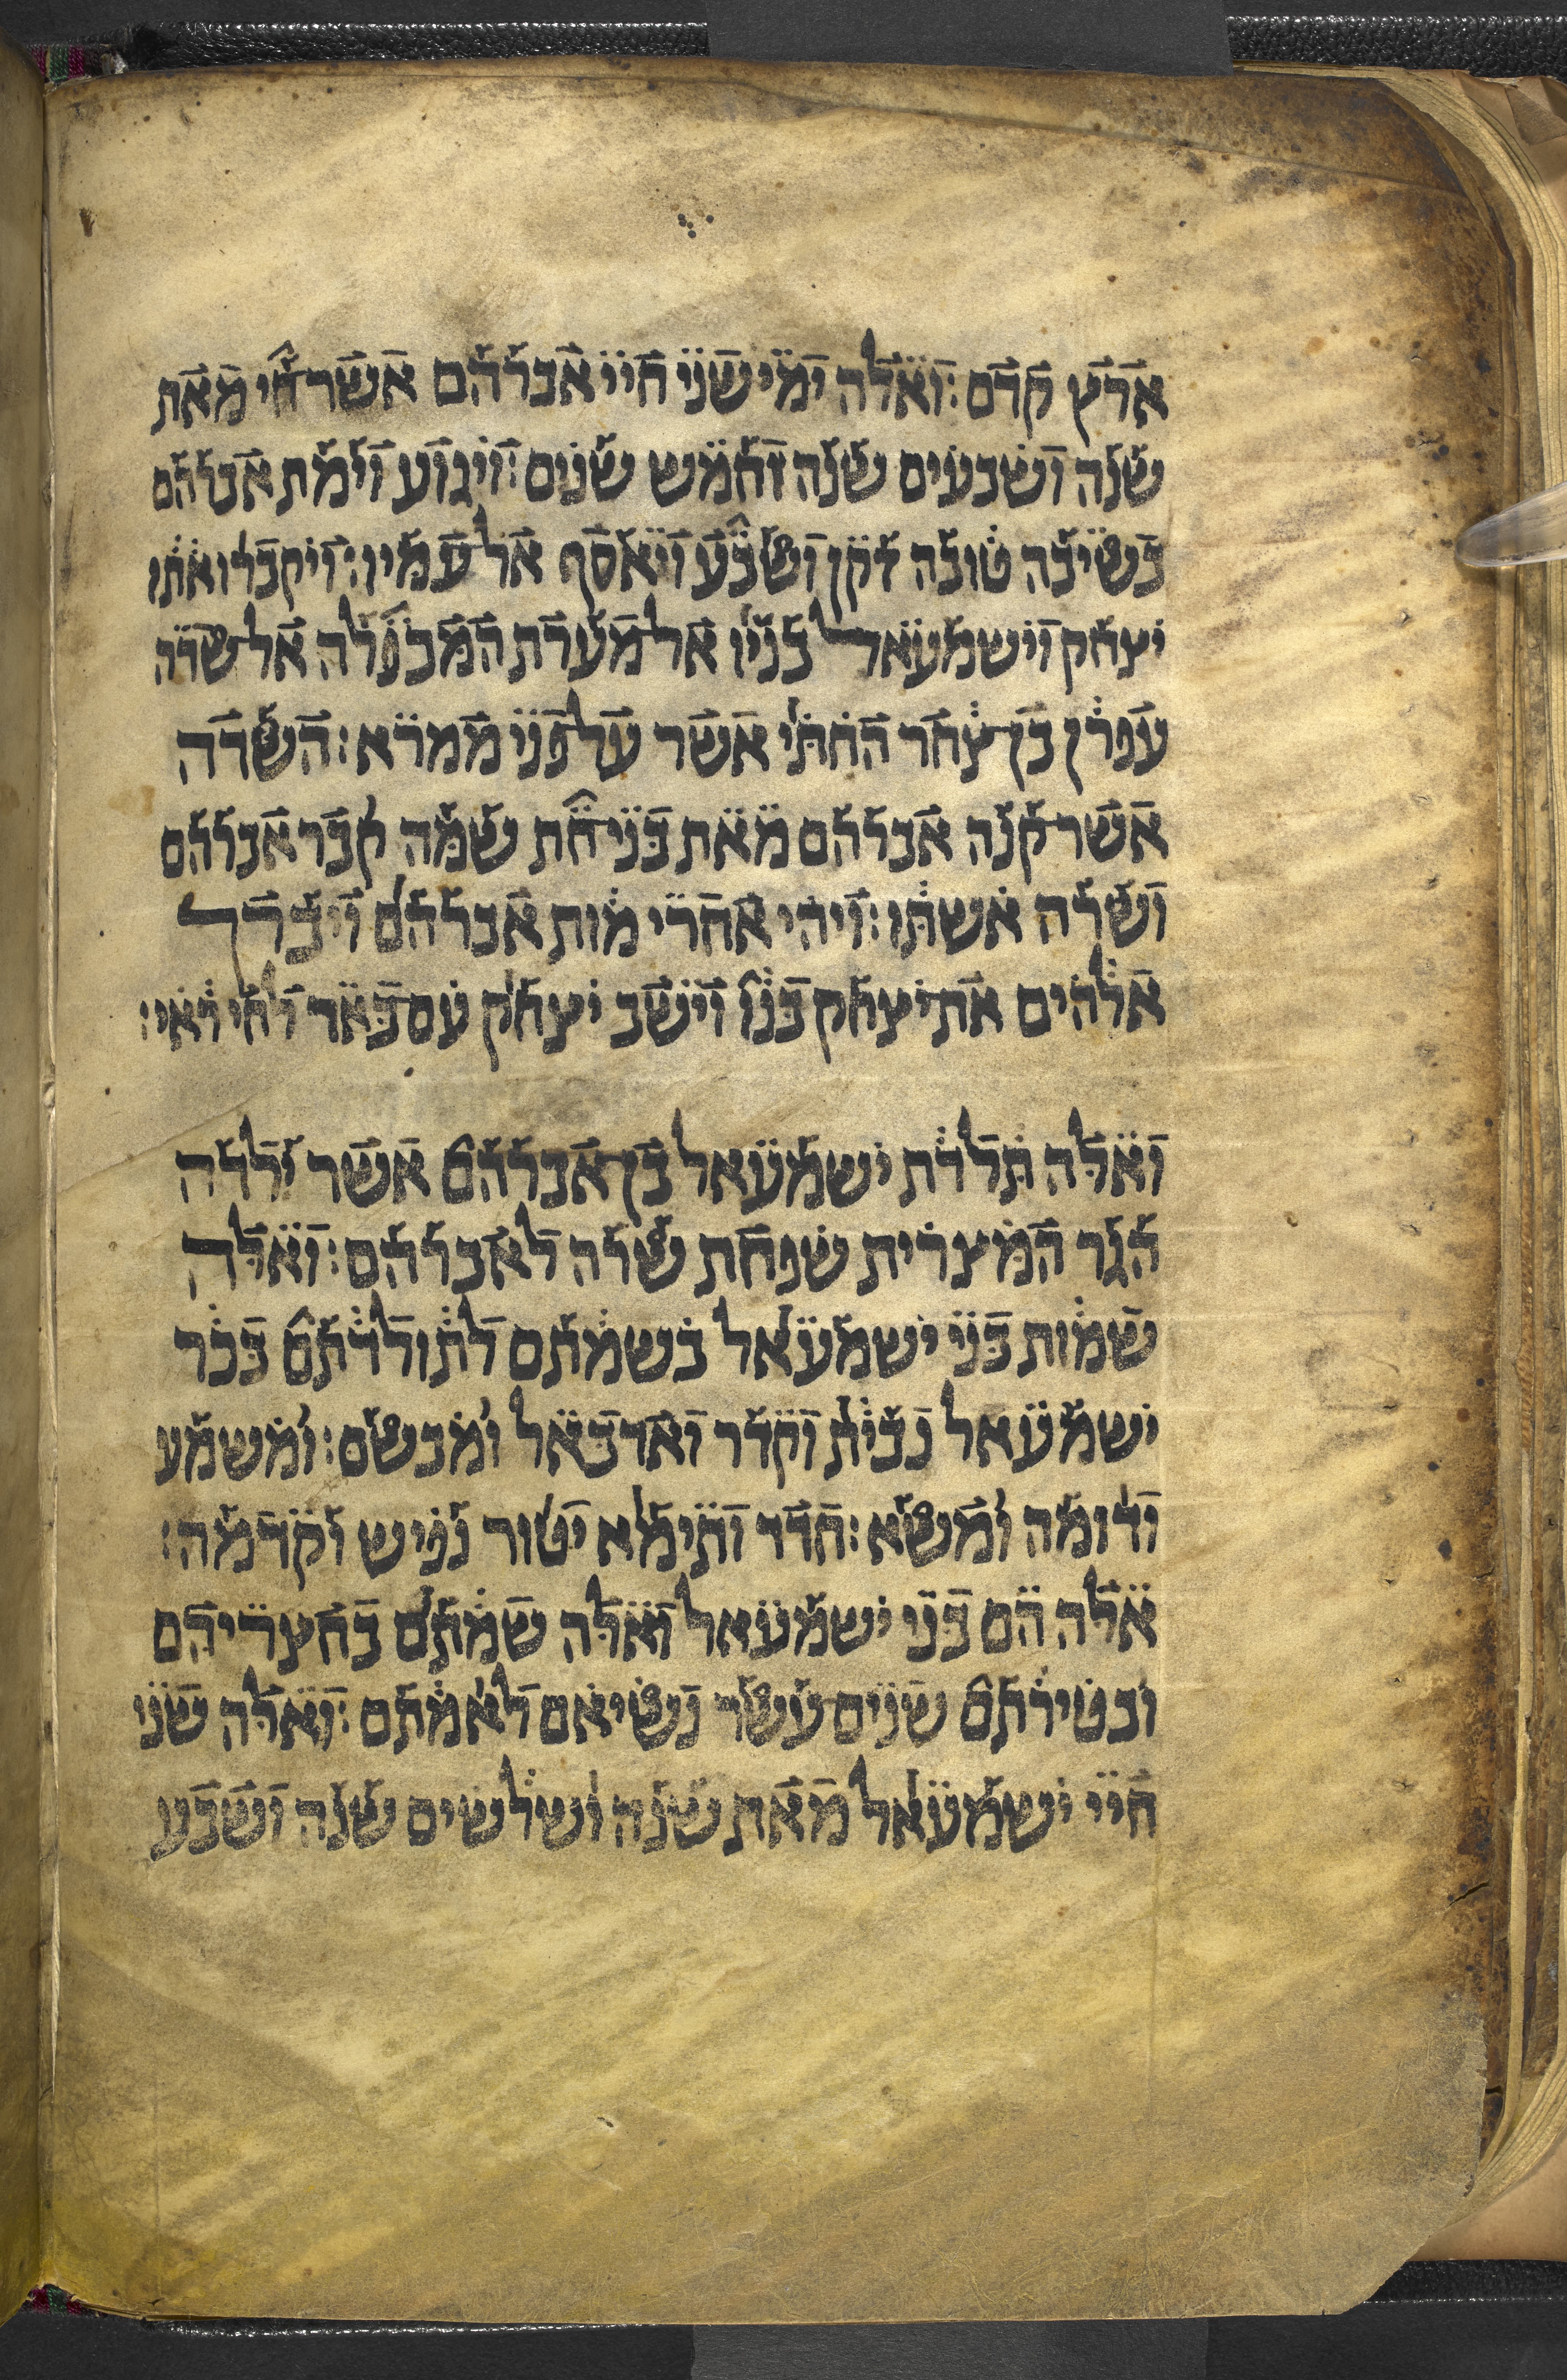 ארץ קדם: ואלה ימי שני חיי אברהם אשר חי מאת
שנה ושבעים שנה וחמש שנים: ויגוע וימת אברהם
בשיבה טובה זקן ושבע ויאסף אל עמיו: ויקברו אתו
יצחק וישמעאל בניו אל מערת המכפלה אל שדה
עפרן בן צחר החתי אשר על פני ממרא: השדה
אשר קנה אברהם מאת בני חת שמה קבר אברהם
ושרה אשתו: ויהי אחרי מות אברהם ויברך
אלהים את יצחק בנו וישב יצחק עם באר לחי ראי:
ואלה תלדת ישמעאל בן אברהם אשר ילדה
הגר המצרית שפחת שרה לאברהם: ואלה
שמות בני ישמעאל בשמתם לתולדתם בכר
ישמעאל נבית וקדר ואדבאל ומבשם: ומשמע
ודומה ומשא: חדד ותימא יטור נפיש וקדמה:
אלה הם בני ישמעאל ואלה שמתם בחצריהם
ובטירתם שנים עשר נשיאם לאמתם: ואלה שני
חיי ישמעאל מאת שנה ושלשים שנה ושבע